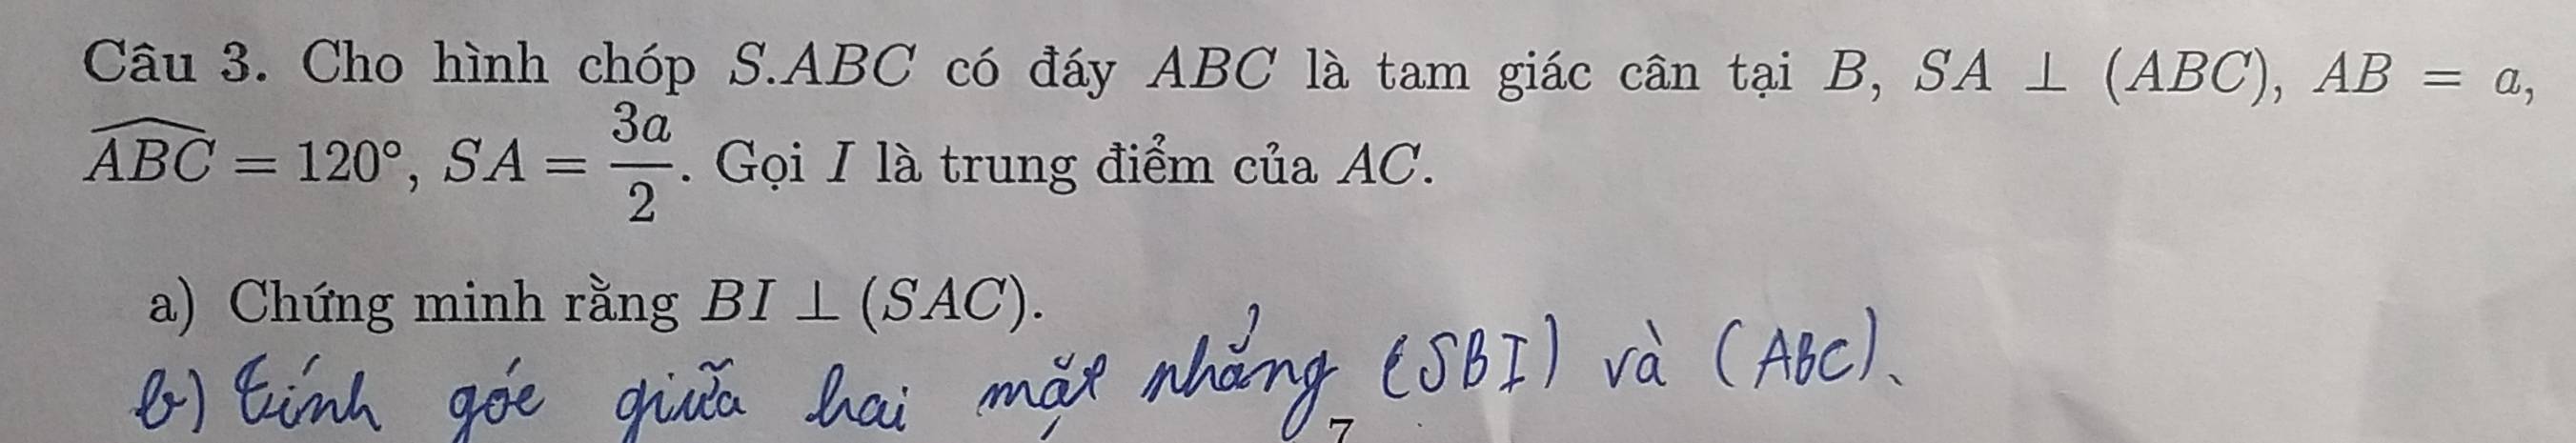 Câu 3. Cho hình chóp S.ABC có đáy ABC là tam giác cân tại B, SA ⊥ (ABC), AB = a,
$\widehat{ABC}$ = 120°, SA = $\frac{3a}{2}$. Gọi I là trung điểm của AC.
a) Chứng minh rằng BI ⊥ (SAC).
b) Tính góc giữa hai mặt phẳng (SBI) và (ABC).
7